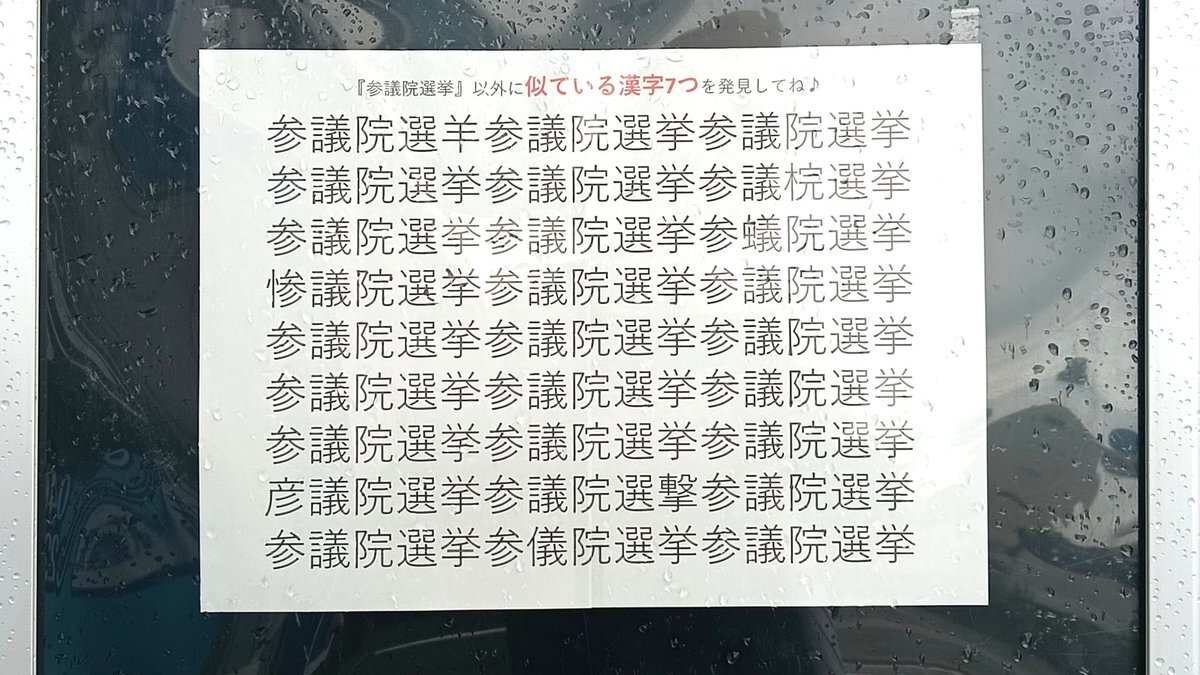 『参議院選挙』以外に似ている漢字7つを発見してね♪
参議院選羊参議院選挙参議院選挙
参議院選挙参議院選挙参議梡選挙
参議院選挙参議院選挙参蟻院選挙
惨議院選挙参議院選挙参議院選挙
参議院選挙参議院選挙参議院選挙
参議院選挙参議院選挙参議院選挙
参議院選挙参議院選挙参議院選挙
彦議院選挙参議院選撃参議院選挙
参議院選挙参儀院選挙参議院選挙